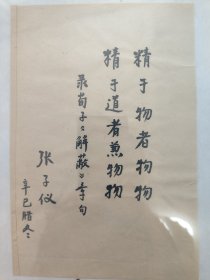 精于物者物物
精于道者兼物物
录荀子《解蔽》季句
张子仪
辛巳腊冬